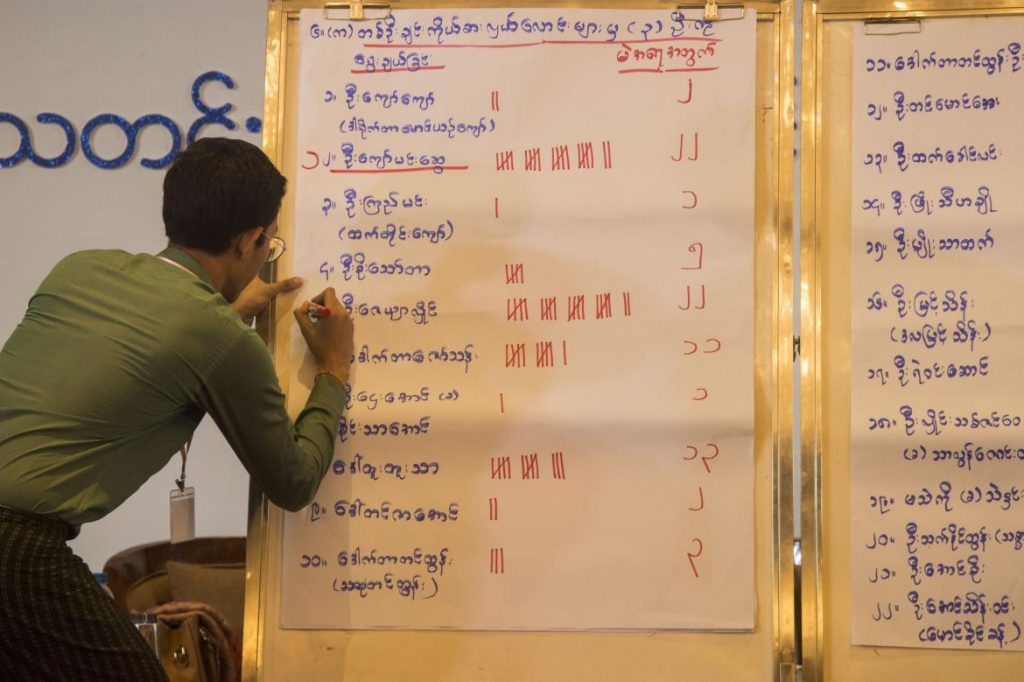 သတင်း
၆။ (က) တစ်ဦးချင်းကိုယ်စားလှယ်လောင်းများမှ (၃) ဦးကို
ရွေးချယ်ခြင်း မဲအရေအတွက်
၁။ ဦးကျော်ကျော် ၂
၂။ ဦးကျော်မင်းဆွေ ၂၂
၃။ ဦးကြည်မင်း ၁
(ထက်တိုင်းကျော်)
၄။ ဦးစိုးသော်တာ ၅
ဦးဇေယျာလှိုင် ၂၂
ဒေါက်တာဇော်သန်း ၁၁
ဦးဌေးအောင် (ခ) ၁
စိုင်းသာအောင်
ဒေါ်ထူးထူးသာ ၁၃
၉။ ဒေါ်တင်ဇာအောင် ၂
၁၀။ ဒေါက်တာတင်ထွန်း ၃
၁၁။ ဒေါက်တာတင်ထွန်းဦး
၁၂။ ဦးတင်မောင်အေး
၁၃။ ဦးထက်ခေါင်လင်း
၁၄။ ဦးဖြိုးသီဟချို
၁၅။ ဦးမျိုးသာထက်
၁၆။ ဦးမြင့်သိန်း
(ဒလမြင့်သိန်း)
၁၇။ ဦးရဲဝင်းဆောင်
၁၈။ ဦးလှိုင်သစ်ဇင်ဝေ
၁၉။ မသဲကို (ခ) သဲနှင်း
၂၀။ ဦးသက်နိုင်ထွန်း
၂၁။ ဦးအောင်စိုး
၂၂။ ဦးအောင်သိန်းဝင်း
(မောင်ခိုင်ခန့်)